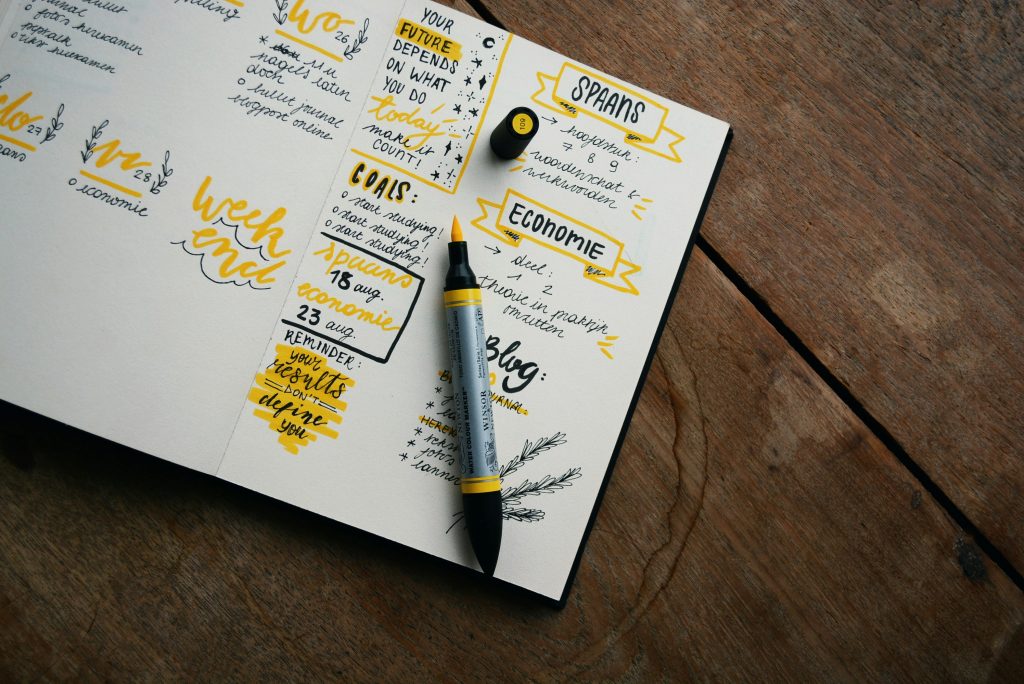 bullet
journal
foto's herexamen
herexamen
wo
26
nagels laten
doen
o bullet journal
blogpost online
do
27
vr
28
o economie
Week
end
YOUR
FUTURE
DEPENDS
ON WHAT
YOU DO
today
make it
COUNT!
GOALS:
o start studying!
o start studying!
o start studying!
Spaans
18 aug.
economie
23 aug.
REMINDER:
your
results
DON'T
define
you
109
SPAANS
→ hoofdstuk:
7 8 9
woordenschat &
werkwoorden
ECONOMIE
→ deel:
1 2
theorie in praktijk
omzetten
Blog:
JOURNAL:
WATER COLOUR MARKER
WINSOR